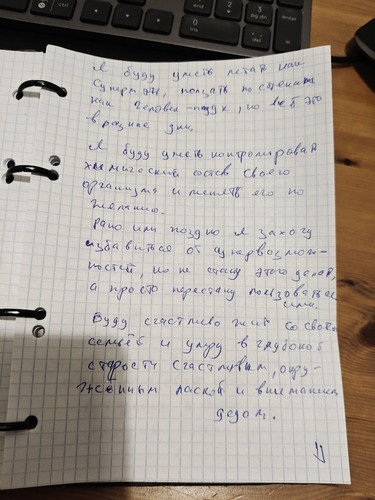 Я буду уметь летать как
супермэн, ползать по стенам
как человек-паук, но всё это
в разные дни.
Я буду уметь контролировать
химический состав своего
организма и менять его по
желанию.
Рано или поздно я захочу
избавиться от
, но не стану этого делать,
а просто перестану пользоваться
ими.
Буду счастливо жить со своей
семьёй и умру в глубокой
старости счастливым, окру-
жённым лаской и вниманием
дедом.